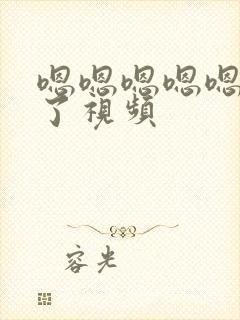 嗯嗯嗯嗯嗯
了視頻
容光